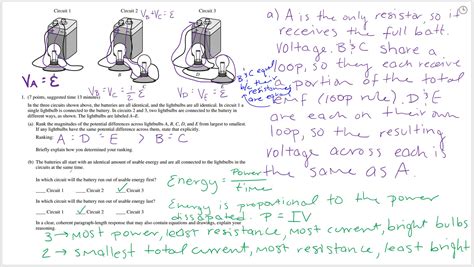 Circuit 1 Circuit 2 Circuit 3
V_B + V_C = Ɛ
V_A = Ɛ
V_B = V_C = 1/2 Ɛ
V_D = V_E = Ɛ
B
D
1. (7 points, suggested time 13 minutes)
In the three circuits shown above, the batteries are all identical, and the lightbulbs are all identical. In circuit 1 a
single lightbulb is connected to the battery. In circuits 2 and 3, two lightbulbs are connected to the battery in
different ways, as shown. The lightbulbs are labeled A–E.
(a) Rank the magnitudes of the potential differences across lightbulbs A, B, C, D, and E from largest to smallest.
If any lightbulbs have the same potential difference across them, state that explicitly.
Ranking: A = D = E > B = C
Briefly explain how you determined your ranking.
(b) The batteries all start with an identical amount of usable energy and are all connected to the lightbulbs in the
circuits at the same time.
In which circuit will the battery run out of usable energy first?
___ Circuit 1 ___ Circuit 2 ___ Circuit 3
In which circuit will the battery run out of usable energy last?
___ Circuit 1 ___ Circuit 2 ___ Circuit 3
In a clear, coherent paragraph-length response that may also contain equations and drawings, explain your
reasoning.
a) A is the only resistor, so it
receives the full batt.
voltage. B&C share a
loop, so they each receive
B&C equal
b/c their
resistances
are eq.
a portion of the total
emf (loop rule). D&E
are each on their own
loop, so the resulting
voltage across each is
the same as A.
Energy = Power/time
Energy is proportional to the power
dissipated. P = IV
3 → most power, least resistance, most current, bright bulbs
2 → smallest total current, most resistance, least bright